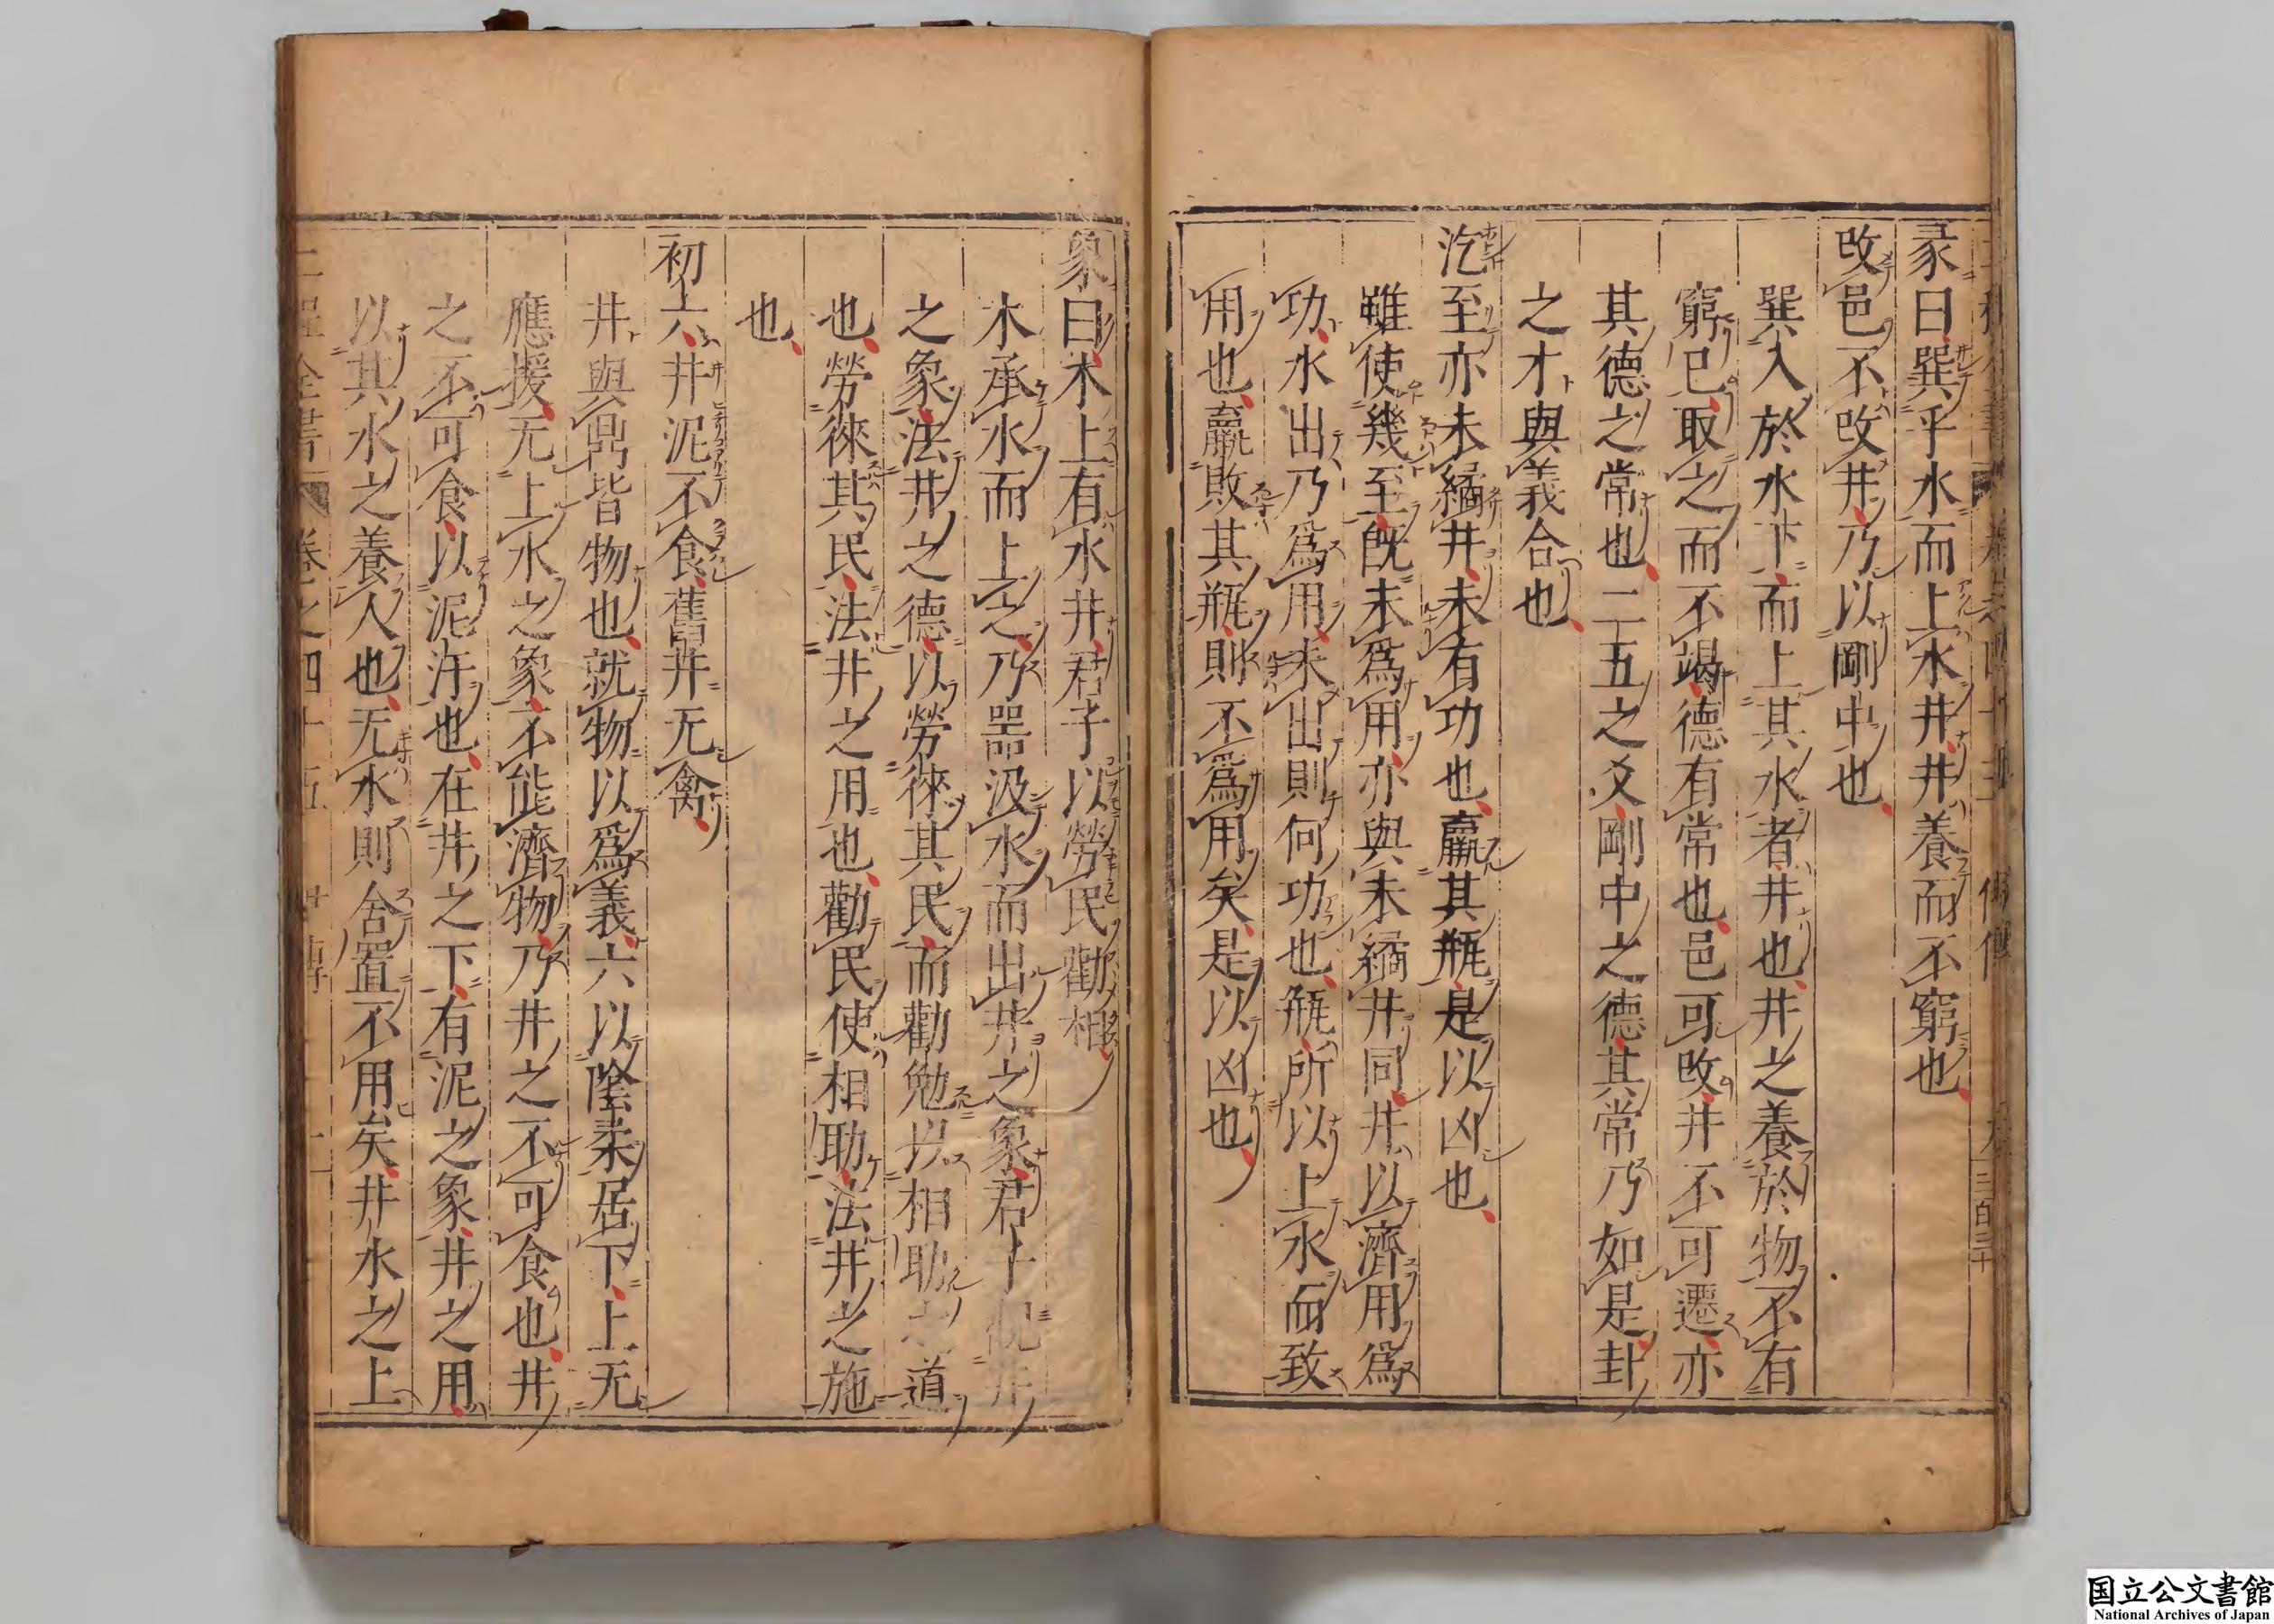 彖曰巽乎水而上水井井養而不窮也
改邑不改井乃以剛中也
巽入於水下而上其水者井也井之養於物不有
窮已取之而不竭德有常也邑可改井不可遷亦
其德之常也二五之爻剛中之德其常乃如是卦
之才與義合也
汔至亦未繘井未有功也羸其瓶是以凶也
雖使幾至既未爲用亦與未繘井同井以濟用爲
功水出乃爲用未出則何功也瓶所以上水而致
用也羸敗其瓶則不爲用矣是以凶也
象曰木上有水井君子以勞民勸相
木承水而上之乃器汲水而出井之象君子觀井
之象法井之德以勞徠其民而勸勉以相助之道
也勞徠其民法井之用也勸民使相助法井之施
也
初六井泥不食舊井无禽
井與鼎皆物也就物以爲義六以陰柔居下上无
應援无上水之象不能濟物乃井之不可食也井
之不可食以泥汙也在井之下有泥之象井之用
以其水之養人也无水則舍置不用矣井水之上
二程全書 卷之四十五
国立公文書館
National Archives of Japan